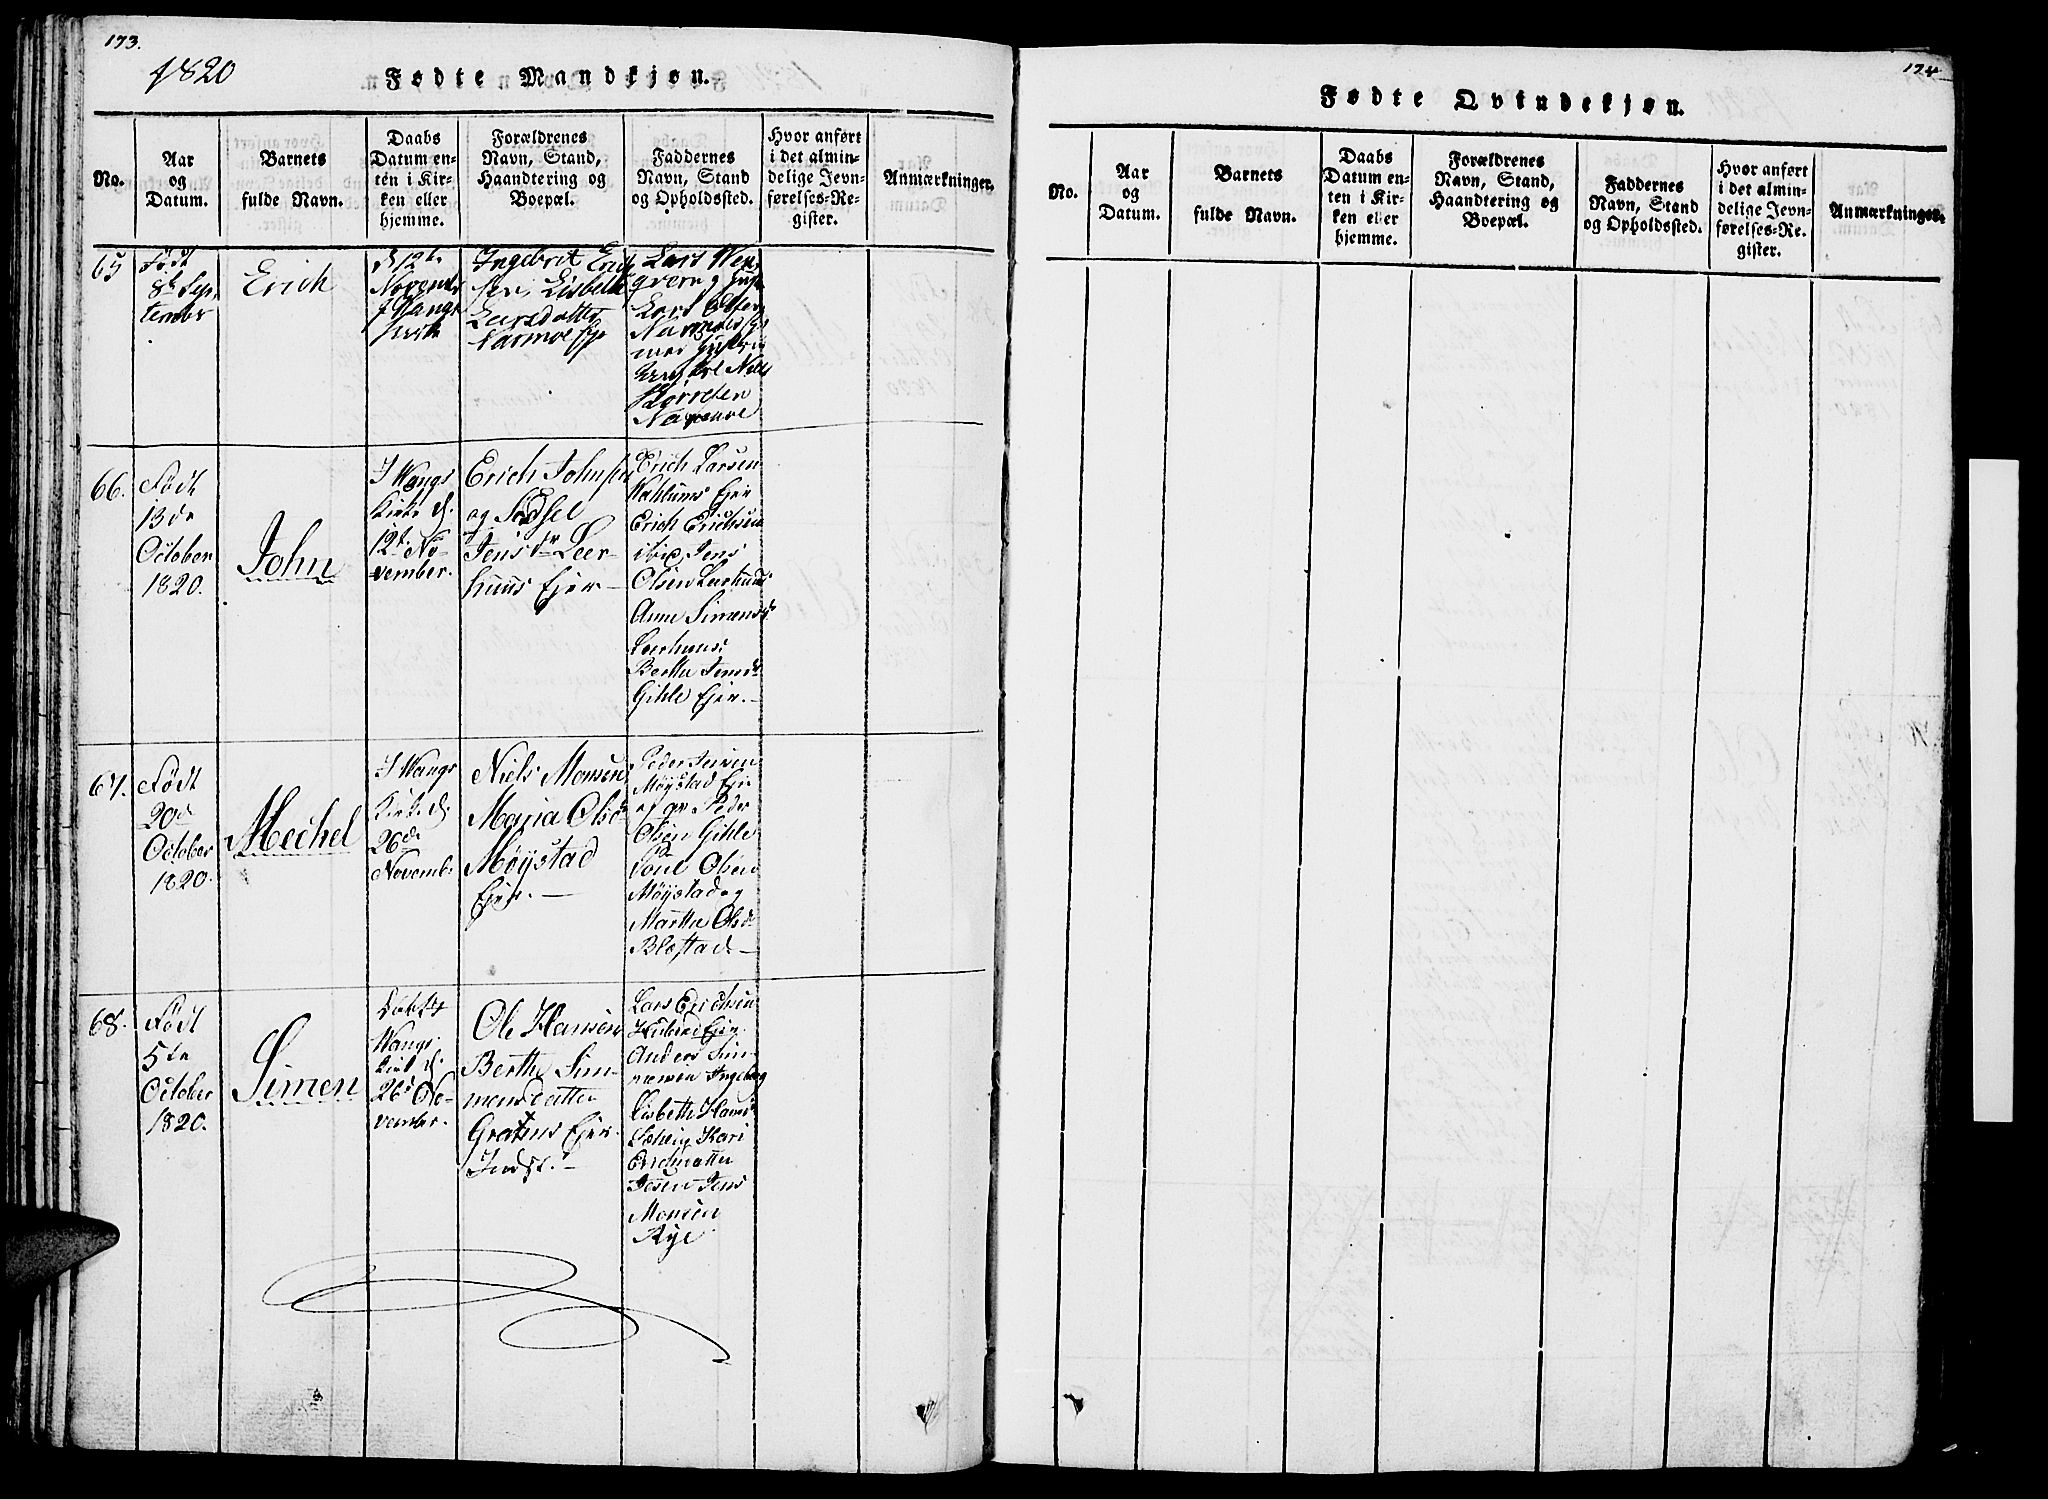 173.
1820
Fødte Mandkjøn.
No.
Aar
og
Datum.
Barnets
fulde Navn.
Daabs
Datum en-
ten i Kir-
ken eller
hjemme.
Forældrenes
Navn, Stand,
Haandtering og
Boepæl.
Faddernes
Navn, Stand
og Opholdssted.
Hvor anført
i det almin-
delige Jevn-
førelses-Re-
gister.
Anmærkninger.
65
Født
8de Sep-
tember
Erich
d 12te
Novembr
Ingebret Erich
sen, Lisbeth
Larsdatter
Lars
Lars
66.
Født
13de
October
1820.
John
I Wangs
Kirke d.
12t. No-
vember.
Erich Johnsen
og Sidsel
Jensdr Leer-
huus Ejer
Erich Larsen
Wahlums Ejer
Erich Erichsen
ibid Jens
Olsen Leerhuus
Anne Simensdr
Leerhuus
Berthe Jensdr
Gihle Ejer.
67.
Født
20de
October
1820.
Mechel
I Wangs
Kirke d.
26de
Novembr
Niels Monsen
Maria Olsdr
Møystad
Ejer.
Peder Iversen
Møystad Ejer
Peder
Olsen Gihle
Poul Olsen
Møystad og
Marthe Olsdr
Blæstad
68.
Født
5te
October
1820.
Simen
Døbt
Wangs
Kirke d.
26d No-
vember.
Ole Hansen
Berthe Sim-
mensdatter
Ejer
Lars Erichsen
Ejer.
Anders Sim-
mensen Ingeborg
Lisbeth Hansdr
Kari
Erichsdatter
Jens
Monsen
Rye
174
Fødte Qvindekjøn.
No.
Aar
og
Datum.
Barnets
fulde Navn.
Daabs
Datum en-
ten i Kir-
ken eller
hjemme.
Forældrenes
Navn, Stand,
Haandtering og
Boepæl.
Faddernes
Navn, Stand
og Opholdssted.
Hvor anført
i det almin-
delige Jevn-
førelses-Re-
gister.
Anmærkninger.